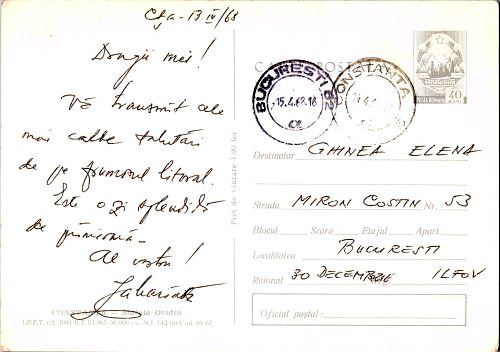 Cţa - 13 IV/68
Dragii mei!
Vă transmit cele
mai calde salutări
de pe frumosul litoral.
Este o zi splendidă
de primăvară.
Al vostru!
CONSTANŢA — Statuia Ovidiu
I.P.P.T. cd. 2001
Preţ de vînzare 1,90 lei
CARTE POSTALĂ
BUCUREŞTI 82
15.4.68.18
CONSTANTA
40
BANI
Destinatar GHINEA ELENA
Strada MIRON COSTIN Nr. 53
Blocul Scara Etajul Apart.
Localitatea BUCUREŞTI
Raionul 30 DECEMBRIE ILFOV
Oficiul poştal: